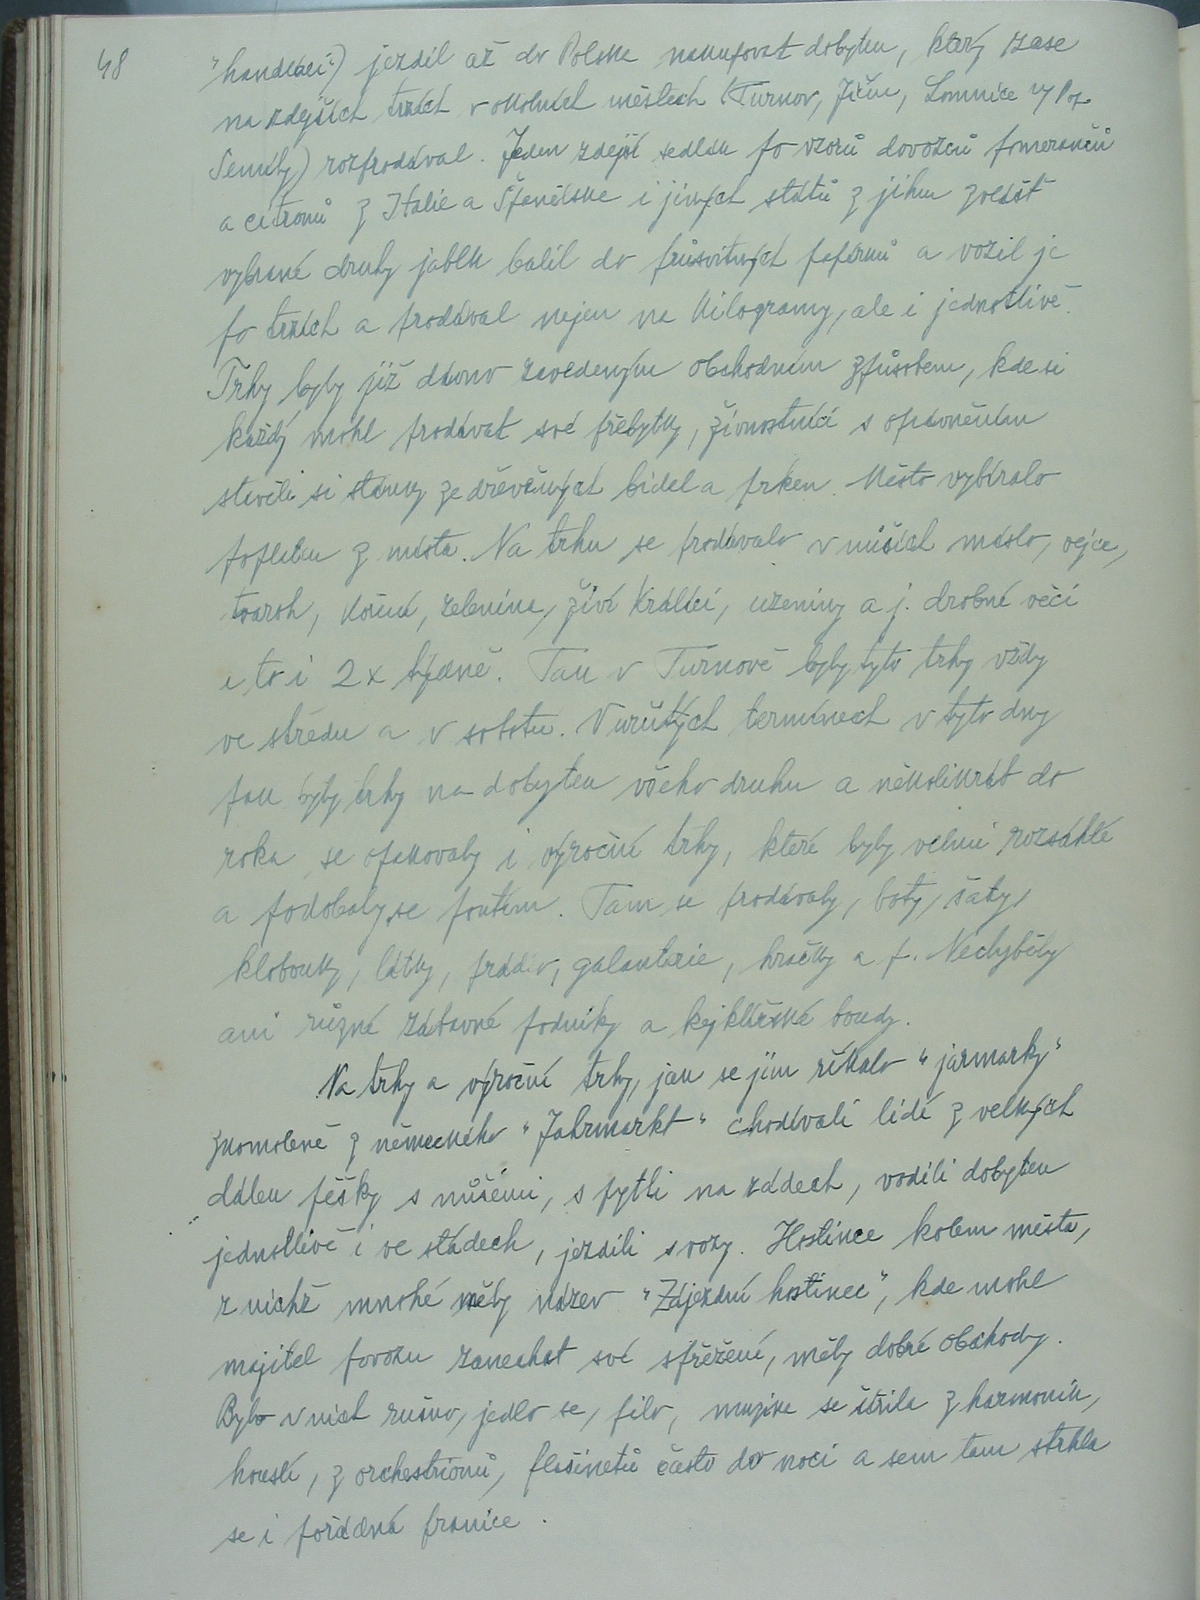 48
"handlíři") jezdil až do Polska nakupovat dobytek, který zase
na zdejších trzích v okolních městech (Turnov, Jičín, Lomnice n/Pop.
Semily) rozprodával. Jeden zdejší sedlák po vzoru dovozců pomerančů
a citronů z Italie a Španělska i jiných států z jihu zvlášť
vybrané druhy jablk balil do průsvitných papírů a vozil je
po trzích a prodával nejen na kilogramy, ale i jednotlivě.
Trhy byly již dávno zavedeným obchodním způsobem, kde si
každý mohl prodávat své přebytky, živnostníci s oprávněním
stavěli si stánky ze dřevěných bidel a prken. Město vybíralo
poplatek z místa. Na trhu se prodávalo v nůších máslo, vejce,
tvaroh, koření, zelenina, živí králíci, uzeniny a j. drobné věci
a to i 2x týdně. Tak v Turnově byly tyto trhy vždy
ve středu a v sobotu. V určitých termínech v tyto dny
pak byly trhy na dobytek všeho druhu a několikrát do
roka se opakovaly i výroční trhy, které byly velmi rozsáhlé
a podobaly se poutím. Tam se prodávaly, boty, šaty,
klobouky, látky, prádlo, galanterie, hračky a p. Nechyběly
ani různé zábavné podniky a kejklířské boudy.
Na trhy a výroční trhy, jak se jim říkalo "jarmarky"
zkomoleně z německého "Jahrmarkt" chodívali lidé z velkých
dálek pěšky s nůšemi, s pytli na zádech, vodili dobytek
jednotlivě i ve stádech, jezdili s vozy. Hostince kolem města,
z nichž mnohé měly název "Zájezdní hostinec", kde mohl
majitel povozu zanechat své spřežení, měly dobré obchody.
Bylo v nich rušno, jedlo se, pilo, muzika se šířila z harmonik,
houslí, z orchestrionů, flašinetů často do noci a sem tam strhla
se i pořádná pranice.